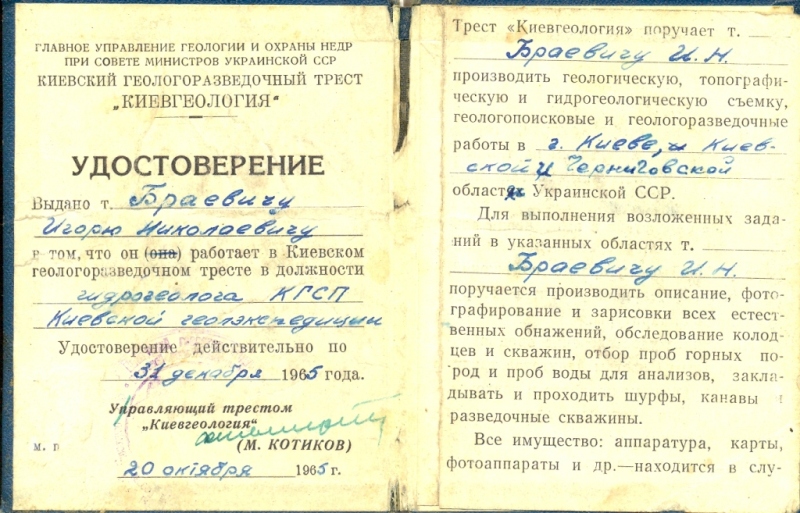 ГЛАВНОЕ УПРАВЛЕНИЕ ГЕОЛОГИИ И ОХРАНЫ НЕДР
ПРИ СОВЕТЕ МИНИСТРОВ УКРАИНСКОЙ ССР
КИЕВСКИЙ ГЕОЛОГОРАЗВЕДОЧНЫЙ ТРЕСТ
„КИЕВГЕОЛОГИЯ“
УДОСТОВЕРЕНИЕ
Выдано т. Браевичу
Игорю Николаевичу
в том, что он (она) работает в Киевском
геологоразведочном тресте в должности
гидрогеолога КГСП
Киевской геолэкспедиции
Удостоверение действительно по
31 декабря 1965 года.
Управляющий трестом
„Киевгеология“
(М. КОТИКОВ)
м. п
20 октября 1965 г.
Трест «Киевгеология» поручает т.
Браевичу И. Н.
производить геологическую, топографи-
ческую и гидрогеологическую съемку,
геологопоисковые и геологоразведочные
работы в г. Киеве, и Киев-
ской и Черниговской
областях Украинской ССР.
Для выполнения возложенных зада-
ний в указанных областях т.
Браевичу И. Н
поручается производить описание, фото-
графирование и зарисовки всех естест-
венных обнажений, обследование колод-
цев и скважин, отбор проб горных по-
род и проб воды для анализов, заклa-
дывать и проходить шурфы, канавы и
разведочные скважины.
Все имущество: аппаратура, карты,
фотоаппараты и др.—находится в слу-